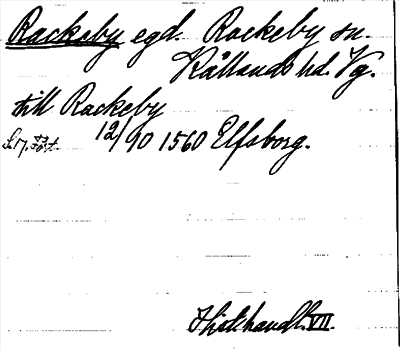 Rackeby egd. Rackeby sn.
Kållands hd. Vg.
till Rackeby
12/10 1560 Elfsborg.
Hist. handl. VII.